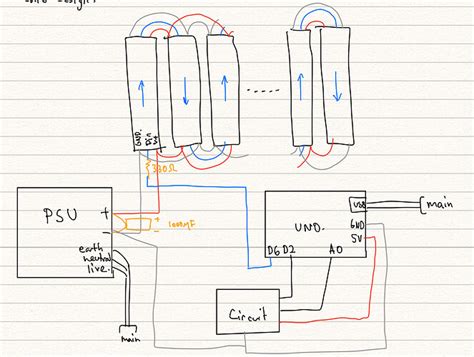 GND.
Din
5V
330Ω
PSU
+
-
+
-
1000µF
earth
neutral
live.
main
UNO.
USB
main
GND
5V
D6 D2
A0
Circuit